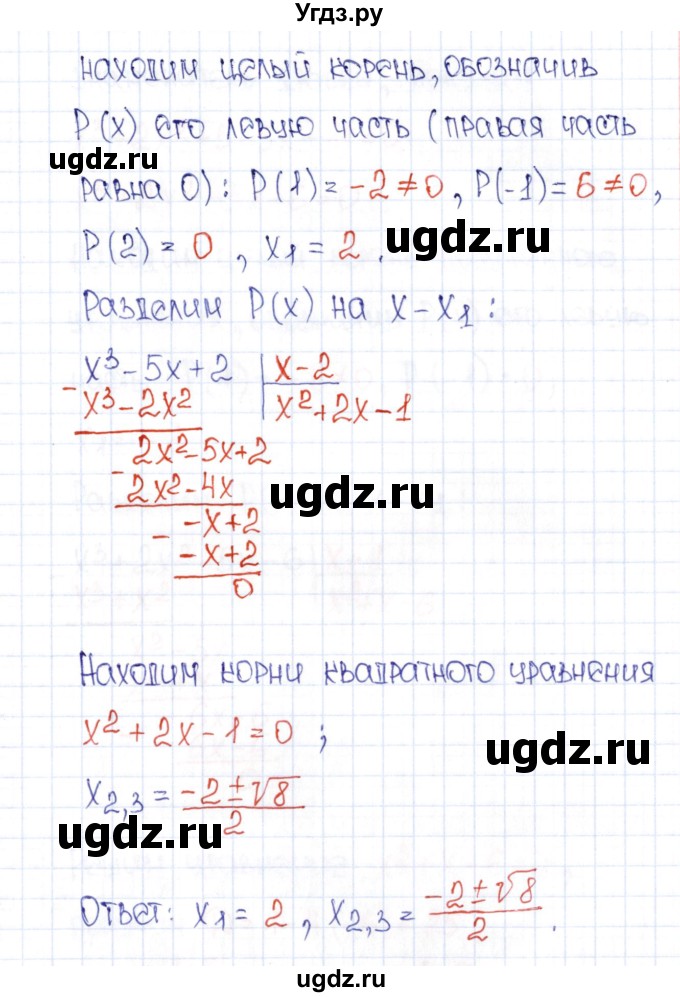 Угдз.ру
находим целый корень, обозначив
P(x) его левую часть (правая часть
ugdz.ru
равна 0): P(1) = -2 ≠ 0, P(-1) = 6 ≠ 0,
P(2) = 0 , x₁ = 2 .
ugdz.ru
Разделим P(x) на x - x₁ :
x³ - 5x + 2 | x - 2
- x³ - 2x² | x² + 2x - 1
2x² - 5x + 2
- 2x² - 4x
ugdz.ru
- x + 2
- - x + 2
0
Находим корни квадратного уравнения
x² + 2x - 1 = 0 ;
ugdz.ru
x₂,₃ = (-2 ± √8)/2
ugdz.ru
Ответ: x₁ = 2 , x₂,₃ = (-2 ± √8)/2 .
ugdz.ru